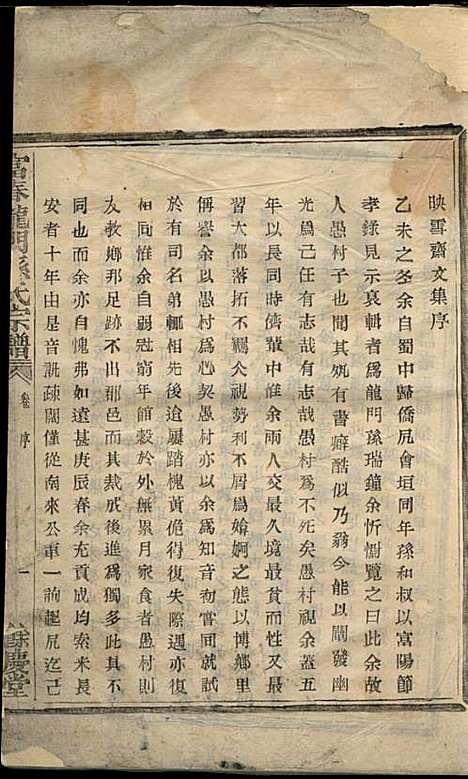 映雪齋文集序
乙未之冬余自蜀中歸僑凥會垣同年孫和叔以富陽節
孝錄見示哀輯者爲龍門孫瑞鐘余忻慟覽之曰此余故
人愚村子也問其夙有書癖酷似乃翁今能以闡發幽
光爲己任有志哉有志哉愚村爲不死矣愚村視余蓋五
年以長同時儕輩中惟余兩人交最久境最貧而性又最
習大都落拓不羈矢視勢利不屑爲媕婀之態以博鄉里
偁譽余以愚村爲心契愚村亦以余爲知音初嘗同就試
於有司名弟輒相先後追屢踏槐黃俛得復失際遇亦復
相同惟余自弱冠竆年館穀於外無累月家食者愚村則
友教鄉邦足跡不出郡邑而其裁成後進爲獨多此其不
同也而余亦自愧弗如遠甚庚辰春余充貢成均索米長
安者十年由是音訊疎闊僅從南來公車一詢起凥迄己
富春龍門孫氏宗譜
卷
序
一
餘慶堂